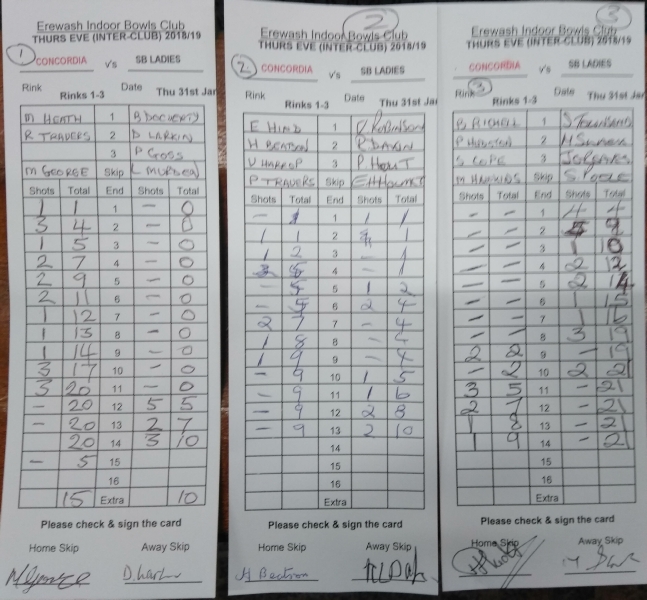 1
Erewash Indoor Bowls Club
THURS EVE (INTER-CLUB) 2018/19
CONCORDIA v's SB LADIES
Rink Rinks 1-3 Date Thu 31st Jan
M HEATH 1 B DOCHERTY
R TRAVERS 2 D LARKIN
3 P CROSS
M GEORGE Skip L
Shots Total End Shots Total
1 1 1 - 0
3 4 2 - 0
1 5 3 - 0
2 7 4 - 0
2 9 5 - 0
2 11 6 - 0
1 12 7 - 0
1 13 8 - 0
1 14 9 - 0
3 17 10 - 0
3 20 11 - 0
- 20 12 5 5
- 20 13 2 7
20 14 3 10
- 5 15
16
15 Extra 10
Please check & sign the card
Home Skip Away Skip
2
Erewash Indoor Bowls Club
THURS EVE (INTER-CLUB) 2018/19
2 CONCORDIA v's SB LADIES
Rink Rinks 1-3 Date Thu 31st Jan
E HIND 1 R ROBINSON
H BEATSON 2 R DAKIN
V HARROP 3 P
P TRAVERS Skip
Shots Total End Shots Total
- 1 1 1
1 1 2 1
1 2 3 - 1
3 4 - 1
- 5 5 1 2
- 5 6 2 4
2 7 7 - 4
1 8 8 - 4
1 9 9 - 4
- 9 10 1 5
- 9 11 1 6
- 9 12 2 8
- 9 13 2 10
14
15
16
Extra
Please check & sign the card
Home Skip Away Skip
3
Erewash Indoor Bowls Club
THURS EVE (INTER-CLUB) 2018/19
CONCORDIA v's SB LADIES
3
Rink Rinks 1-3 Date Thu 31st Jan
B 1 S TOWNSEND
P 2 M
S COPE 3
M HAWKINS Skip S. POOLE
Shots Total End Shots Total
- - 1 4 4
- - 2 9
- - 3 1 10
- - 4 2 12
- - 5 2 14
- - 6 1 15
- - 7 1 16
- - 8 3 19
2 2 9 - 19
- 2 10 2 21
3 5 11 - 21
2 7 12 - 21
1 8 13 - 21
1 9 14 - 21
15
16
Extra
Please check & sign the card
Home Skip Away Skip